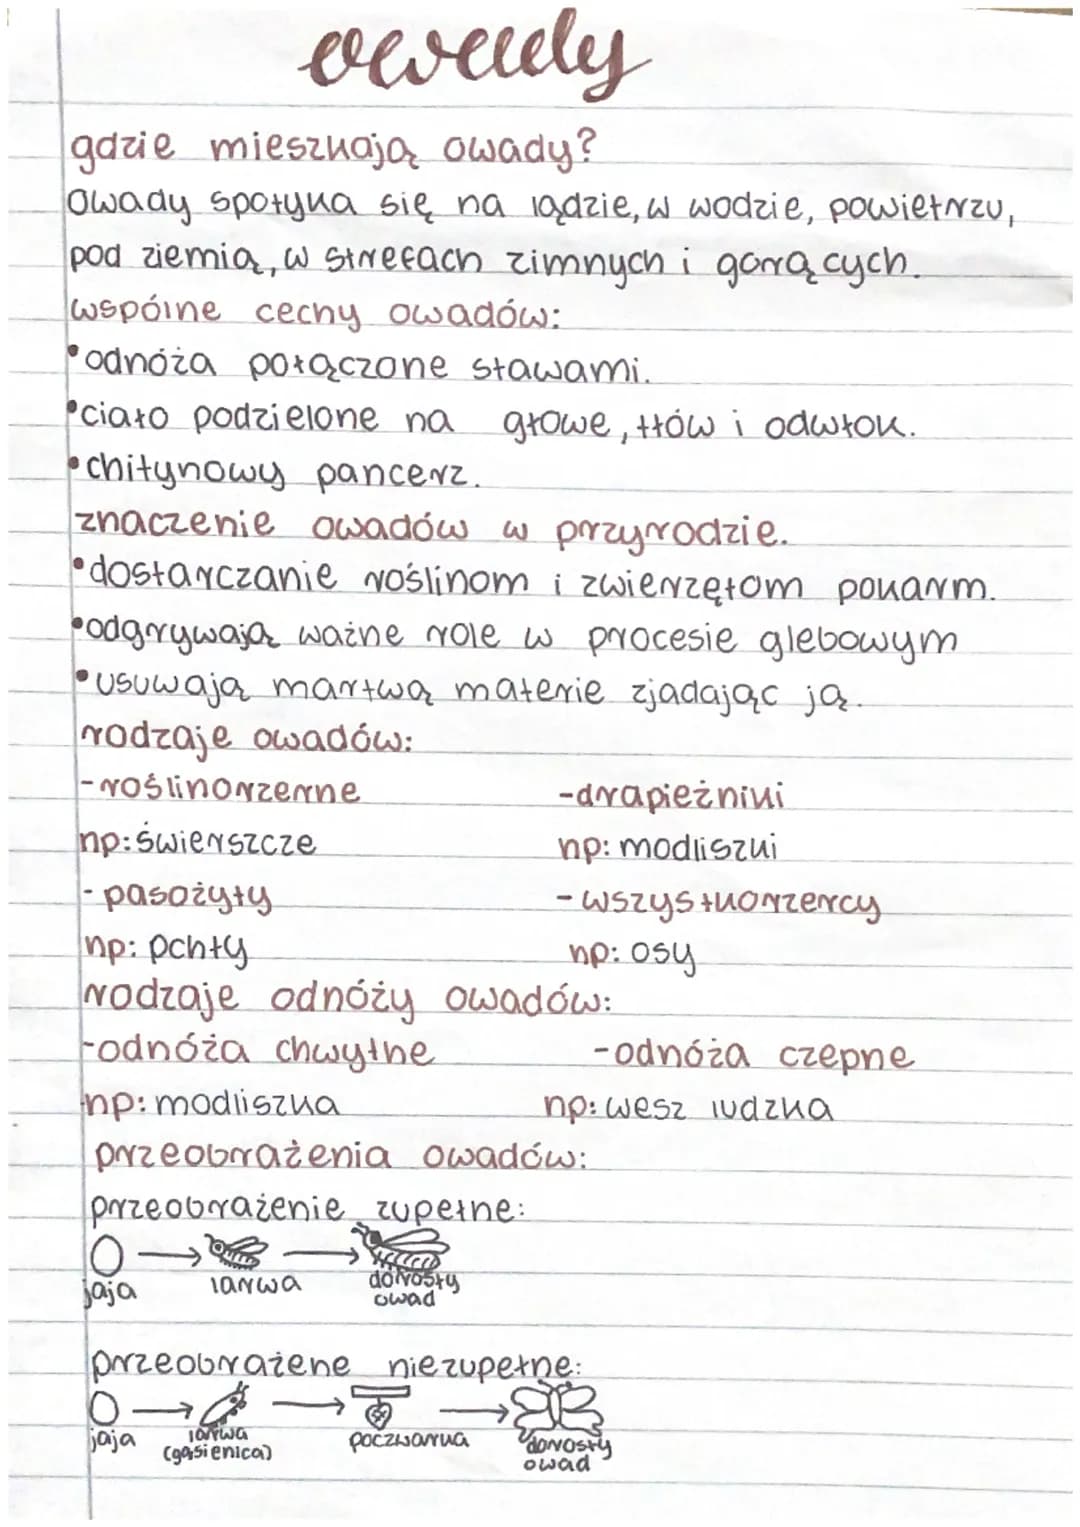 owady
gdzie mieszkają owady?
Owady spotyka się na lądzie, w wodzie, powietrzu,
pod ziemią, w strefach zimnych i gorących.
wspólne cechy owadów:
•odnóża połączone stawami.
•ciało podzielone na głowe, tłów i odwłok.
•chitynowy pancerz.
znaczenie owadów w przyrodzie.
•dostarczanie roślinom i zwierzętom pokarm.
•odgrywają ważne role w procesie glebowym
•usuwają martwą materie zjadając ją.
rodzaje owadów:
-roślinorzerne -drapieżniki
np: świerszcze np: modliszki
- pasożyty - wszystkorzercy
np: pchły np: osy
rodzaje odnóży owadów:
-odnóża chwytne -odnóża czepne
np: modliszka np: wesz ludzka
przeobrażenia owadów:
przeobrażenie zupełne:
jaja larwa dorosły
owad
przeobrażene niezupełne:
jaja larwa poczwarka dorosły
(gąsienica) owad